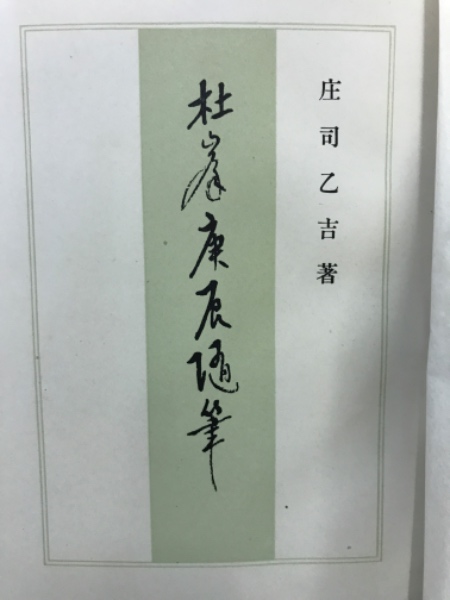 庄司乙吉著
杜峯庚辰随筆